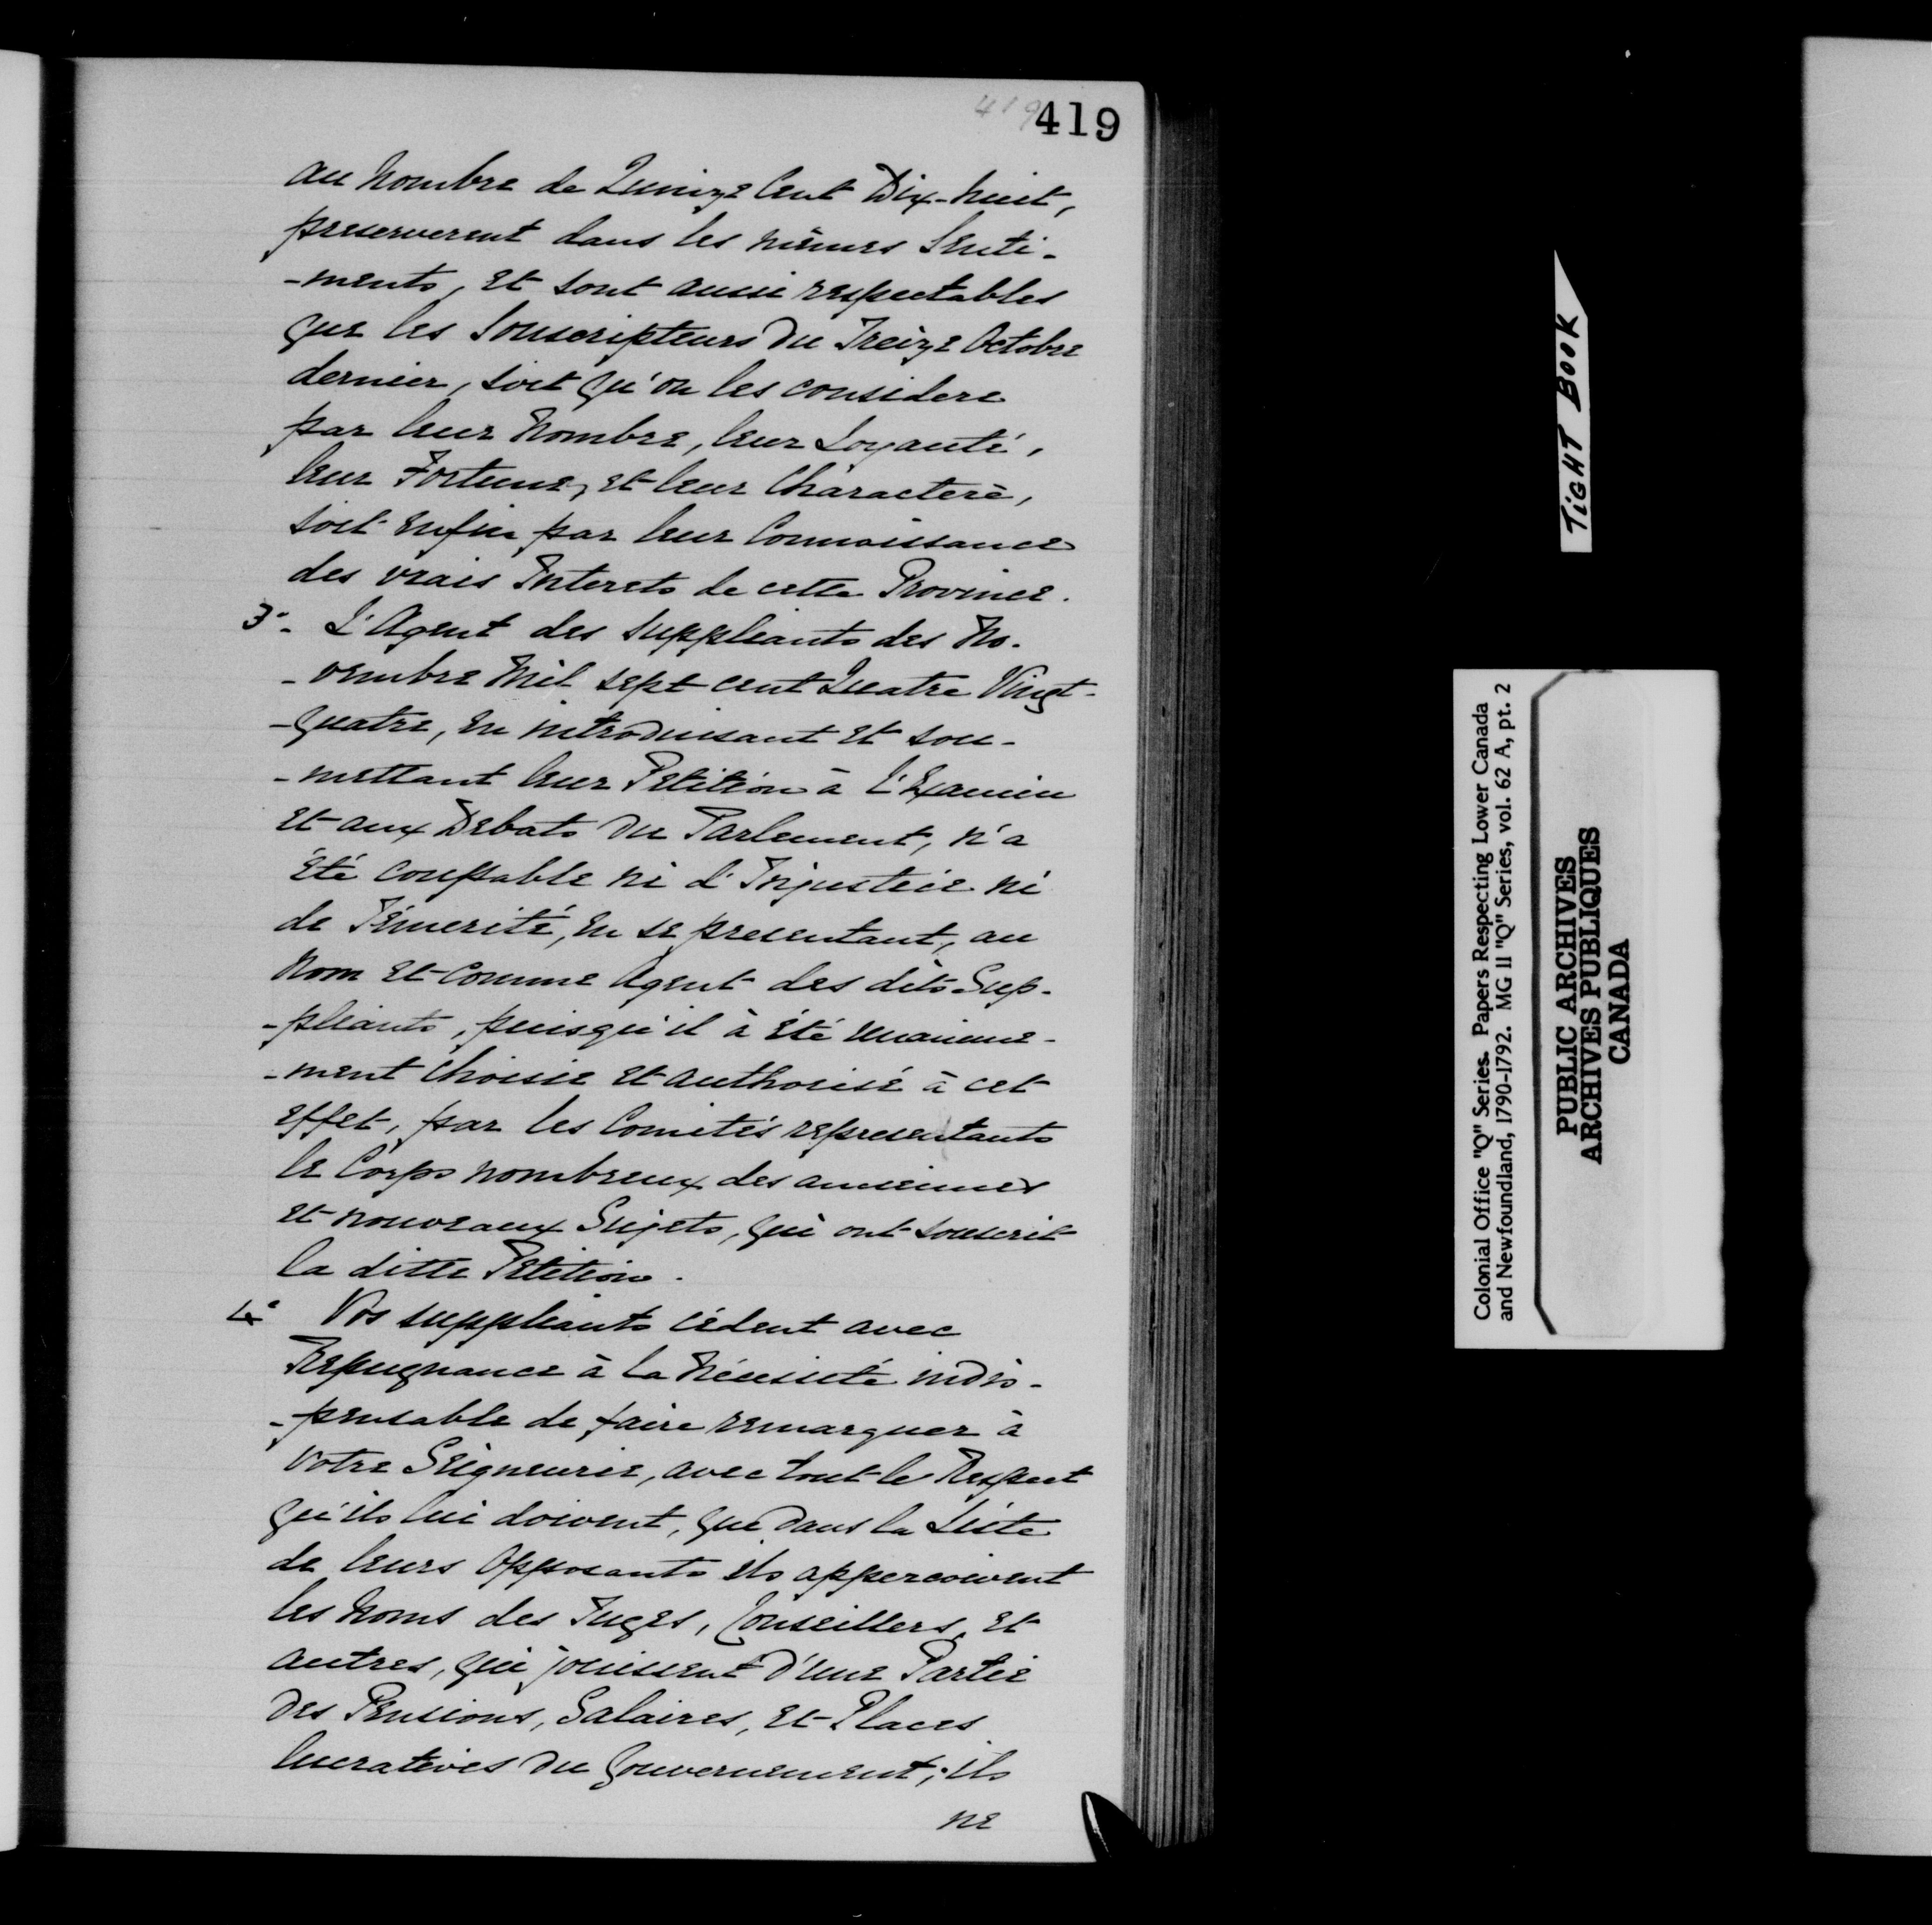 419
419
au Nombre de Quinze Cent Dix-huit,
preserverent dans les mêmes Senti-
-ments, et sont aussi respectables
que les Souscripteurs du Treize Octobre
dernier, soit qu'on les considere
par leur Nombre, leur Loyauté,
leur Fortune, et leur Charactere,
soit enfin par leur Connoissance
des vrais Interets de cette Province.
3° - L'Agent des Suppliants des No-
-vembre Mil sept cent Quatre Vingt-
-quatre, en introduisant et sou-
-mettant leur Petition à l'Examin
et aux Debats du Parlement, n'a
été coupable ni d'Injustice ni
de Témerité, en se presentant, au
Nom et comme Agent des dits Sup-
-pliants, puisqu'il à été unanime-
-ment Choisie et authorisé à cet
effet, par les Comités representants
le Corps nombreux des anciennes
et nouveaux Sujets, qui ont souscrit
la ditte Petition.
4° Vos suppliants cédent avec
Repugnance à la Nécessité indis-
-pensable de faire remarquer à
Votre Seigneurie, avec tout le Respect
qu'ils lui doivent, que dans la Liste
de leurs Opposants ils appercoivent
les Noms des Juges, Conseillers, et
autres, qui jouissent d'une Partie
des Pensions, Salaires, et Places
lucratives du Gouvernement; ils
ne
TiGHT BOOK
Colonial Office "Q" Series. Papers Respecting Lower Canada
and Newfoundland, 1790-1792. MG 11 "Q" Series, vol. 62 A, pt. 2
PUBLIC ARCHIVES
ARCHIVES PUBLIQUES
CANADA